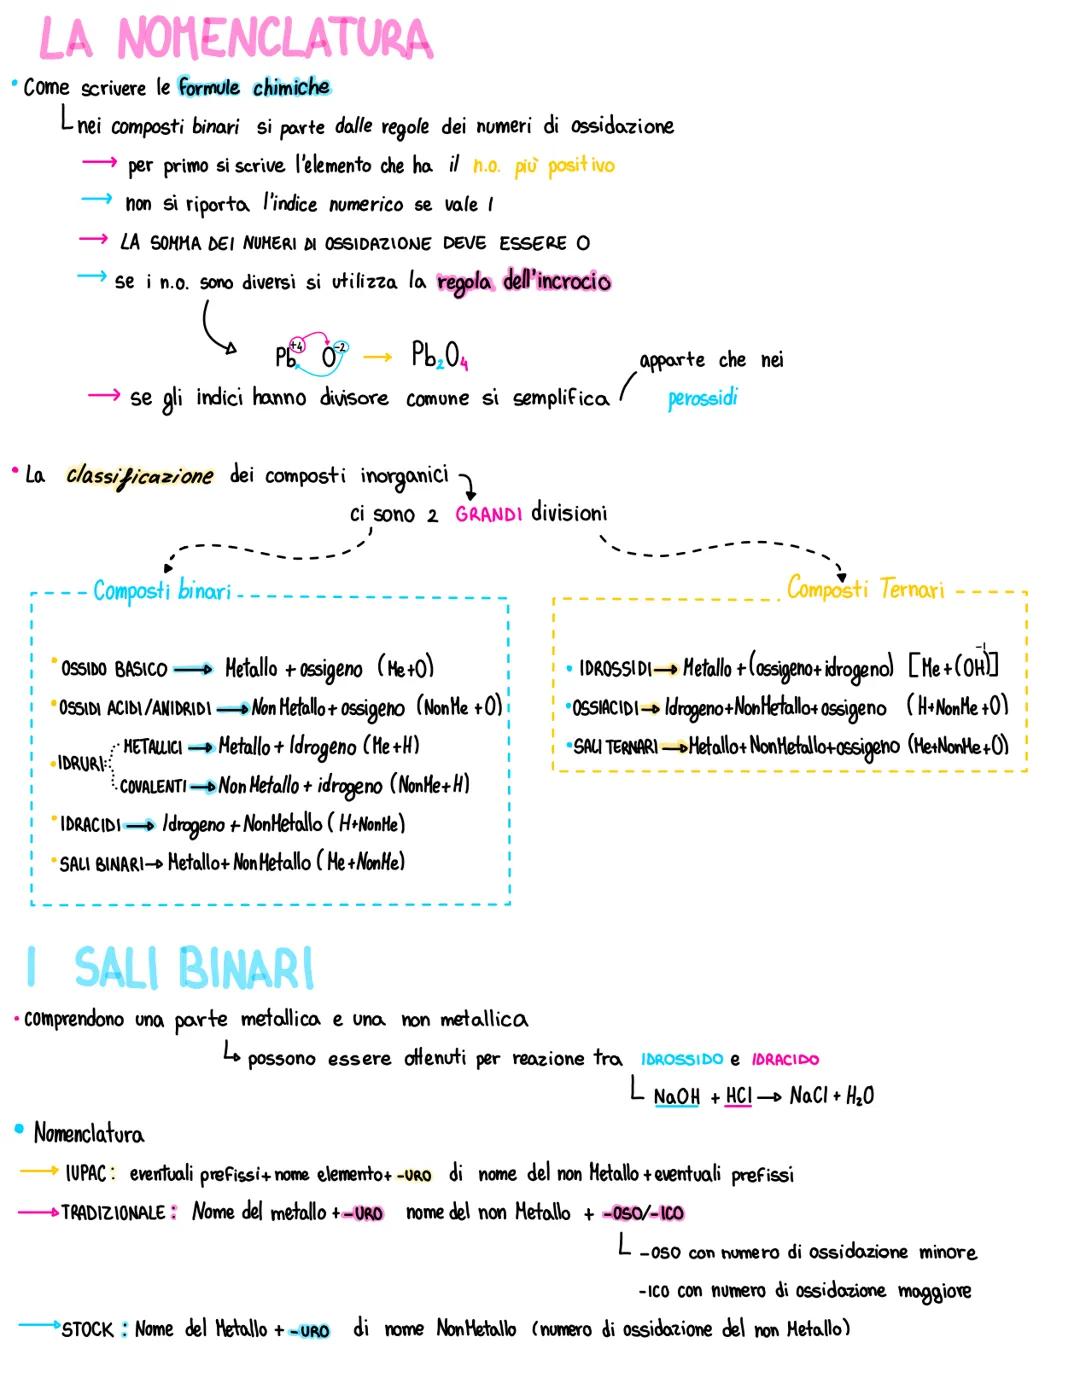 LA NOMENCLATURA
• Come scrivere le formule chimiche
nei composti binari si parte dalle regole dei numeri di ossidazione
→ per primo si scrive l'elemento che ha il n.o. più positivo
→ non si riporta l'indice numerico se vale 1
→ LA SOMMA DEI NUMERI DI OSSIDAZIONE DEVE ESSERE 0
→ se i n.o. sono diversi si utilizza la regola dell'incrocio
Pb⁺⁴ O⁻² → Pb₂O₄
apparte che nei
→ se gli indici hanno divisore comune si semplifica / perossidi
• La classificazione dei composti inorganici
ci sono 2 GRANDI divisioni
Composti binari
• OSSIDO BASICO → Metallo + ossigeno (Me+O)
• OSSIDI ACIDI/ANIDRIDI → Non Metallo + ossigeno (NonMe +O)
METALLICI → Metallo + Idrogeno (Me+H)
• IDRURI:
COVALENTI → Non Metallo + idrogeno (NonMe+H)
• IDRACIDI → Idrogeno + NonMetallo ( H+NonMe)
• SALI BINARI → Metallo + Non Metallo ( Me +NonMe)
Composti Ternari
• IDROSSIDI → Metallo + (ossigeno+idrogeno) [Me+(OH)⁻¹]
• OSSIACIDI → Idrogeno+NonMetallo+ossigeno (H+NonMe +O)
• SALI TERNARI → Metallo+ NonMetallo+ossigeno (Me+NonMe+O)
I SALI BINARI
• comprendono una parte metallica e una non metallica
possono essere ottenuti per reazione tra IDROSSIDO e IDRACIDO
NaOH + HCl → NaCl + H₂O
• Nomenclatura
→ IUPAC: eventuali prefissi+ nome elemento+ -URO di nome del non Metallo + eventuali prefissi
→ TRADIZIONALE: Nome del metallo + -URO nome del non Metallo + -OSO/-ICO
-OSO con numero di ossidazione minore
-ICO con numero di ossidazione maggiore
→ STOCK: Nome del Metallo + -URO di nome NonMetallo (numero di ossidazione del non Metallo)